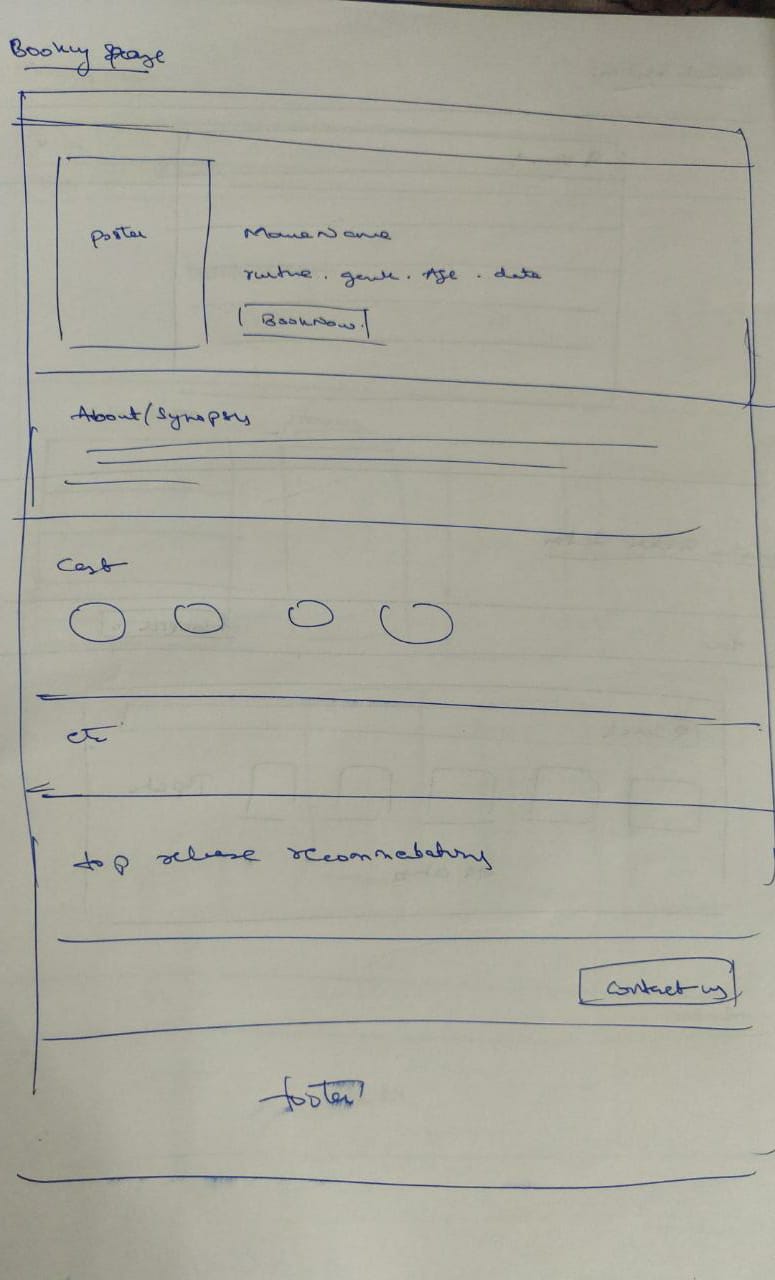 Booking Page
poster
Movie Name
runtime . genre . Age . date
Book Now
About/Synopsys
Cast
etc
top release recommendations
Contact us
footer